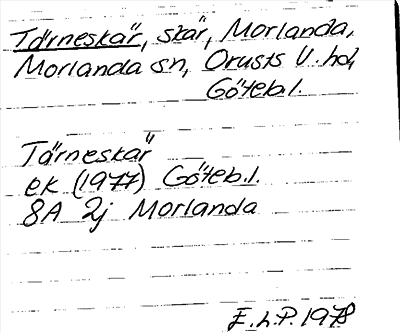 Tärneskär, skär, Morlanda,
Morlanda sn, Orusts V. hd,
Göteb.l.
Tärneskär
ek (1977) Göteb.l.
8A 2j Morlanda
E.L.P. 1978